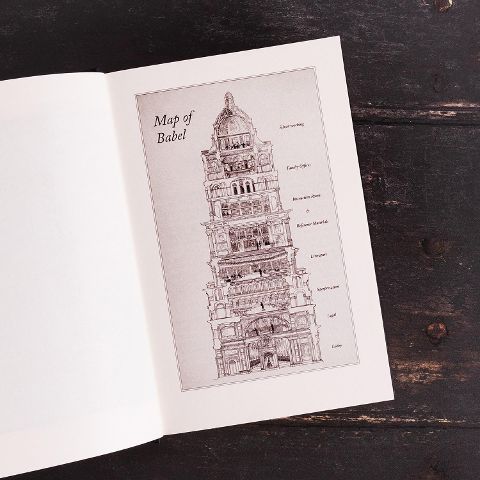 Map of
Babel
Silver-working
Faculty Offices
Instruction Rooms
&
Reference Materials
Literature
Interpretation
Legal
Lobby